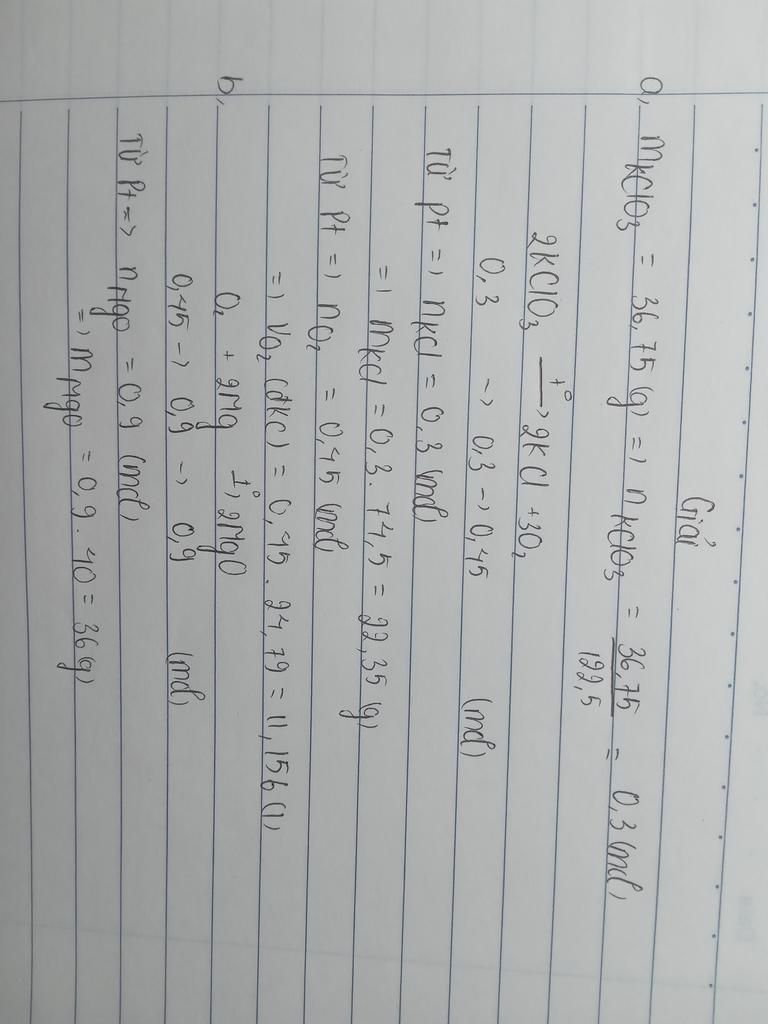 Giải
a, mKClO₃ = 36,75 (g) => nKClO₃ = 36,75/122,5 = 0,3 (mol)
2KClO₃ —t°→ 2KCl + 3O₂
0,3 -> 0,3 -> 0,45 (mol)
Từ pt => nKCl = 0,3 (mol)
=> mKCl = 0,3 . 74,5 = 22,35 (g)
Từ Pt => nO₂ = 0,45 (mol)
=> VO₂ (đkc) = 0,45 . 24,79 = 11,156 (l)
b, O₂ + 2Mg —t°→ 2MgO
0,45 -> 0,9 -> 0,9 (mol)
Từ Pt => nMgO = 0,9 (mol)
=> mMgO = 0,9 . 40 = 36 (g)